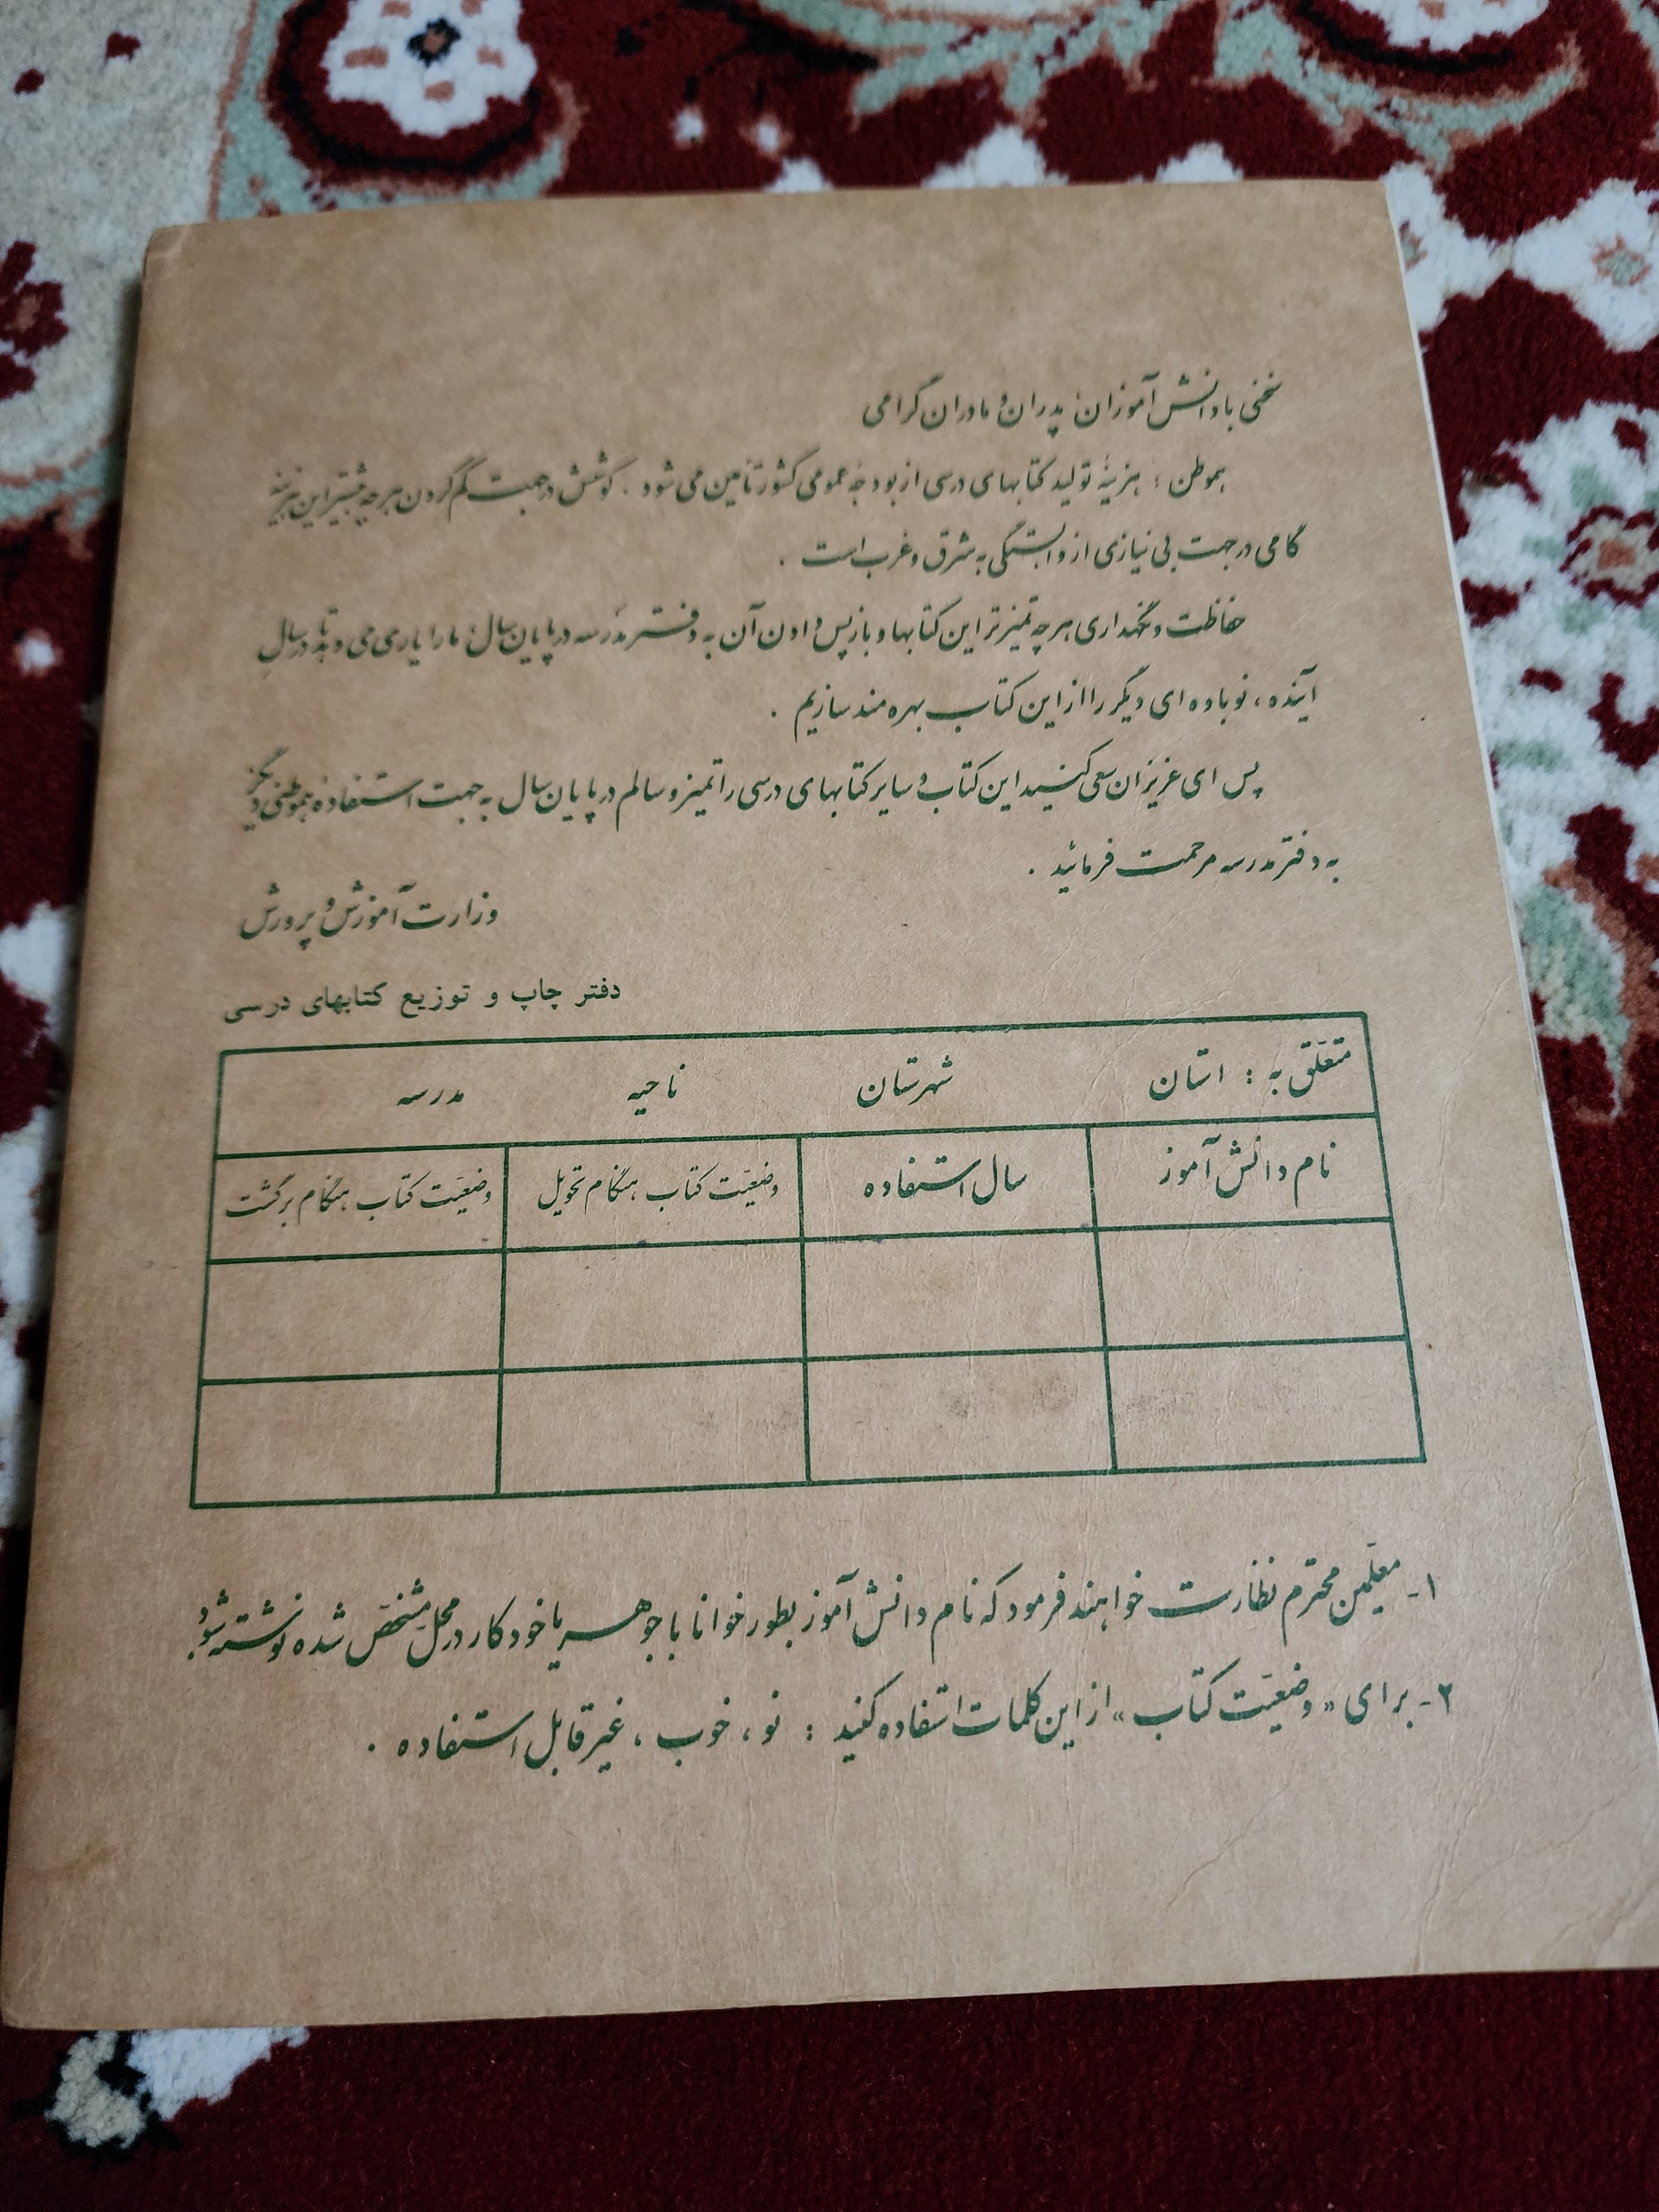 سخنی با دانش‌آموزان، پدران و مادران گرامی
هموطن : هزینهٔ تولید کتابهای درسی از بودجهٔ عمومی کشور تأمین می‌شود . کوشش در جهت کم کردن هر چه بیشتر این هزینه
گامی در جهت بی‌نیازی از وابستگی به شرق و غرب است .
حفاظت و نگهداری هر چه تمیزتر این کتابها و بازپس دادن آن به دفتر مدرسه در پایان سال، ما را یاری می‌دهد تا در سال
آینده ، نوباوه‌ای دیگر را از این کتاب بهره‌مند سازیم .
پس ای عزیزان سعی کنید این کتاب و سایر کتابهای درسی را تمیز و سالم در پایان سال به جهت استفاده هموطنی دیگر
به دفتر مدرسه مرحمت فرمائید .
وزارت آموزش و پرورش
دفتر چاپ و توزیع کتابهای درسی
متعلّق به : استان شهرستان ناحیه مدرسه
نام دانش‌آموز سال استفاده وضعیّت کتاب هنگام تحویل وضعیّت کتاب هنگام برگشت
۱- معلّمین محترم نظارت خواهند فرمود که نام دانش‌آموز بطور خوانا با جوهر یا خودکار در محلّ مشخّص شده نوشته شود.
۲- برای «وضعیّت کتاب» از این کلمات استفاده کنید : نو ، خوب ، غیر قابل استفاده .